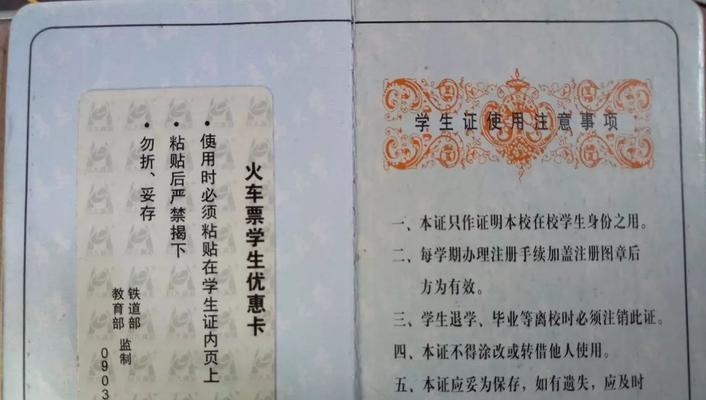 火车票学生优惠卡
• 使用时必须粘贴在学生证内页上
• 粘贴后严禁揭下
• 勿折、妥存
铁道部
教育部 监制
0903
学生证使用注意事项
一、本证只作证明本校在校学生身份之用。
二、每学期办理注册手续加盖注册图章后
方为有效。
三、学生退学、毕业等离校时必须注销此证。
四、本证不得涂改或转借他人使用。
五、本证应妥为保存，如有遗失，应及时